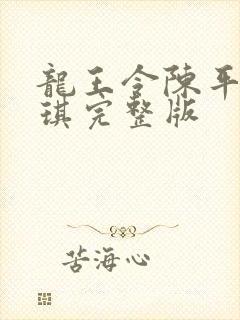 龍王令陳平
琪完整版
苦海心